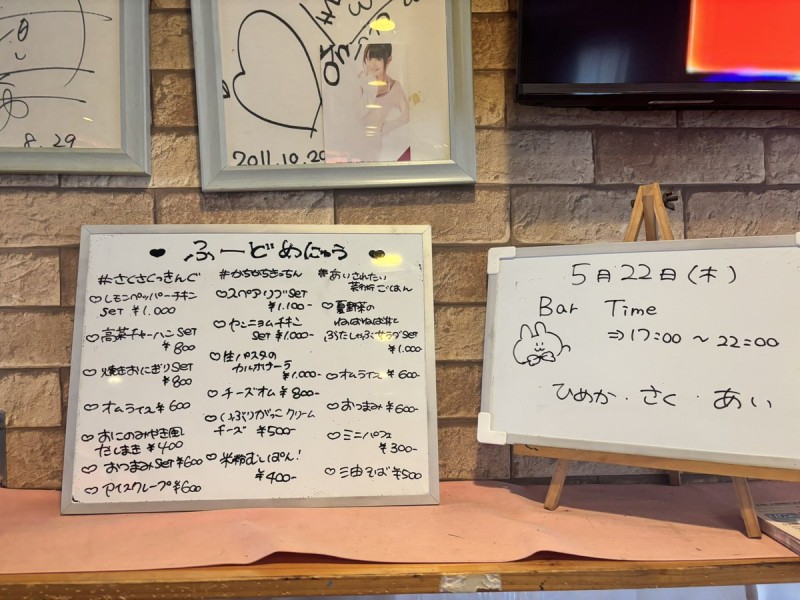 8.29
2011.10.20
♥ ふーどめにゅう ♥
#さくさくっきんぐ
♡レモンペッパーチキン
SET ¥1.000
♡高菜チャーハンSET
¥800
♡焼きおにぎりSET
¥800
♡オムライス¥600
♡おにのみやき風
だしまき ¥400
♡おつまみSET ¥600
♡アイスクレープ¥600
♡スペアリブSET
¥1.100-
♡ヤンニョムチキン
SET ¥1.000-
♡生パスタの
カルボナーラ
¥1.000-
♡チーズオム ¥800-
クリーム
チーズ ¥500-
♡米粉むしぱん!
¥400-
#あいされたい
ごはん
♡夏野菜の
ねばねば丼と
SET
¥1.000
♡オムライス ¥600-
♡おつまみ ¥600-
♡ミニパフェ
¥300-
♡油そば ¥500
5月22日(木)
Bar Time
⇒17:00 ~ 22:00
ひめか・さく・あい